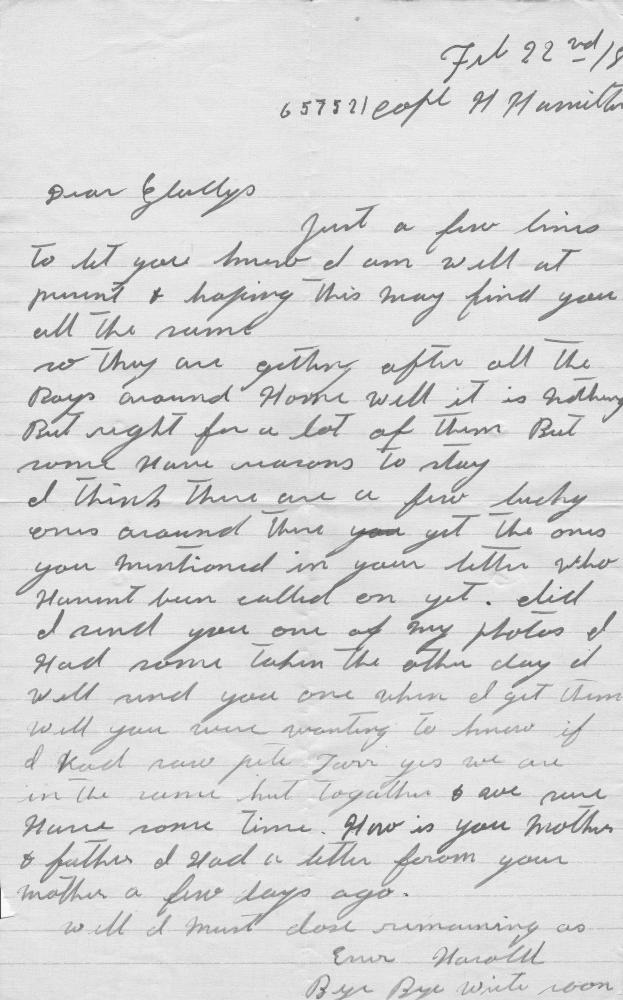 Feb 22nd /18
657521 Corpl H Hamilton
Dear Gladys
Just a few lines
to let you know I am well at
present & hoping this may find you
all the same
so they are getting after all the
Boys around Home well it is nothing
But right for a lot of them But
some Have reasons to stay
I think there are a few lucky
ones around there you yet the ones
you mentioned in your letter who
Havent been called on yet. did
I send you one of my photos I
Had some taken the other day I
will send you one when I get them
well you were wanting to know if
I Had saw pete Tarr yes we are
in the same hut togather & we sure
Have some time. How is you Mother
& father I Had a letter forom your
mother a few days ago.
well I must close remaining as
Ever Harold
Bye Bye write soon